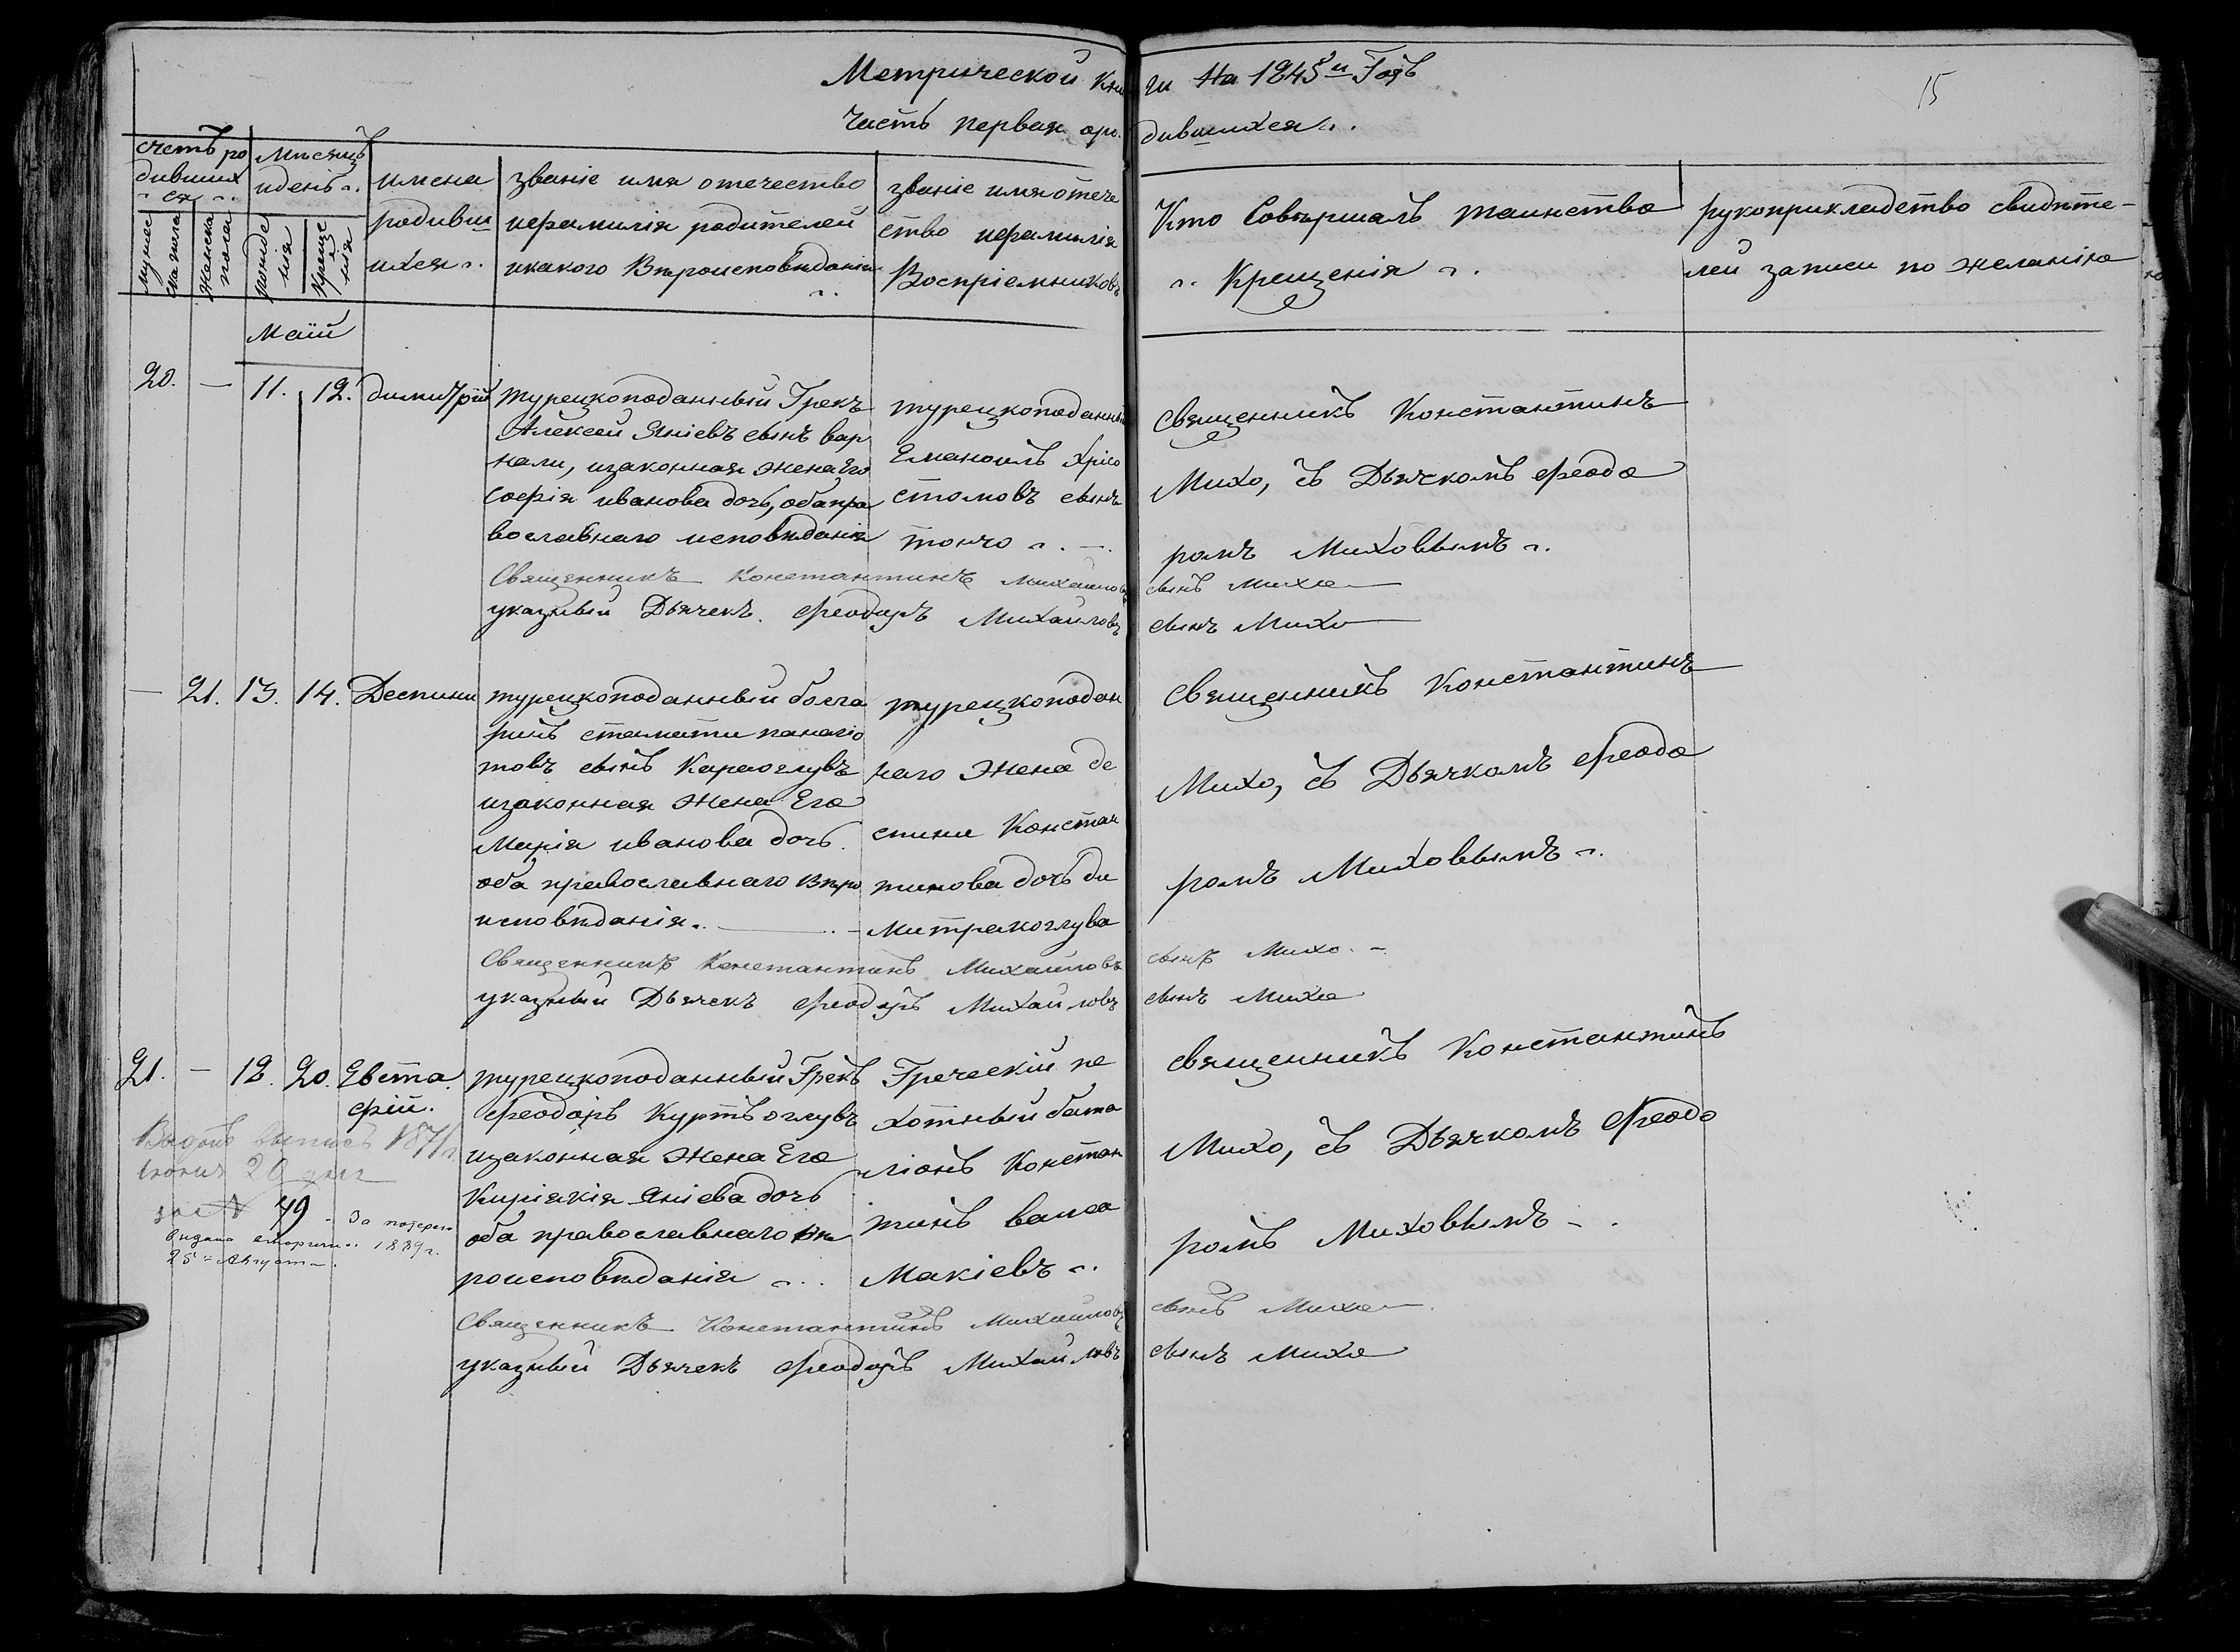 Метрической Книги На 1845й Годъ
15
Часть первая оро. дившихся
счетъ ро
дивших
ся
мужес
ска пола
женска
пола
Мѣсяцъ
идень
рожде
нія
креще
нія
имена
родивш
ихся
званіе имя отечество
ифамилія родителей
икакого Вѣроисповѣданія
званіе имя отече
ство ифамилія
Воспріемниковъ
Кто Совершалъ таинство
Крещенія
рукоприкладство свидѣте-
лей записи по желанію
Маій
20. — 11. 12. димитрій
турецкоподанный Грекъ
Алексей Яніевъ сынъ вар
нали, изаконная жена Его
Софія иванова дочь, оба пра
вославнаго исповѣданія
турецкоподанный
Емануилъ Хрисо
стомовъ сынъ
тончо
Священникъ Константинъ
Михо, съ Дьячкомъ Феодо
ромъ Миховымъ
Священникъ Константинъ Михайловъ сынъ Михо
указный Дьячекъ Феодоръ Михайловъ сынъ Михо
— 21. 13. 14. Деспини
турецкоподанный болга
ринъ стамати панагіо
товъ сынъ Караоглувъ
изаконная Жена Его
Марія иванова дочь.
оба православнаго Вѣро
исповѣданія
турецкоподан
наго Жена де
спини Констан
тинова дочь ди
митракоглува
Священникъ Константинъ
Михо, съ Дьячкомъ Феодо
ромъ Миховымъ
Священникъ Константинъ Михайловъ сынъ Михо
указный Дьячекъ Феодоръ Михайловъ сынъ Михо
21. — 12. 20. Евста
фій.
турецкоподанный Грекъ
Феодоръ Куртъоглувъ
изаконная Жена Его
Киріакія Яніева дочь
оба православнаго Вѣ
роисповѣданія
Греческій пе
хотный бата
ліонъ Констан
тинъ
Макіевъ
Священникъ Константинъ
Михо, съ Дьячкомъ Феодо
ромъ Миховымъ
Выданъ выпись 1871 г.
июня 20 дня
за № 49
За потерею
выдана вторично 1889 г.
25 Августа
Священникъ Константинъ Михайловъ сынъ Михо
указный Дьячекъ Феодоръ Михайловъ сынъ Михо